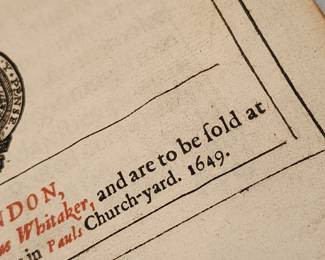 NDON,
as Whitaker, and are to be ſold at
in Pauls Church-yard. 1649.